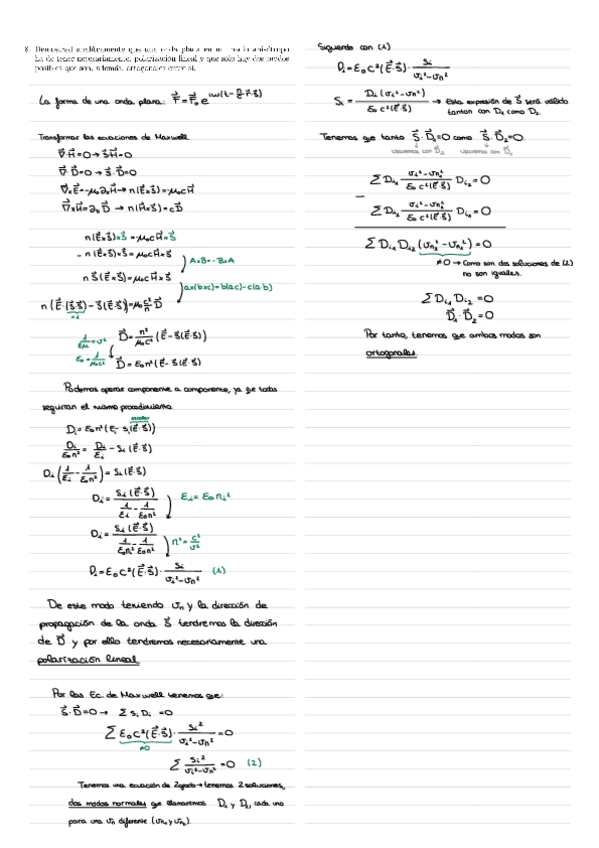 8. Demostrad analíticamente que una onda plana en un medio anisótropo
ha de tener necesariamente, polarización lineal y que sólo hay dos modos
posibles que son, además, ortogonales entre sí.
La forma de una onda plana: F⃗ = F⃗₀ e^{iω(t - n/c r⃗·s⃗)}
Transformar las ecuaciones de Maxwell
∇⃗·H⃗=0 → s⃗·H⃗=0
∇⃗·D⃗=0 → s⃗·D⃗=0
∇⃗×E⃗=-μ₀∂ₜH⃗ → n(E⃗×s⃗)=μ₀cH⃗
∇⃗×H⃗=∂ₜD⃗ → n(H⃗×s⃗)=cD⃗
n(E⃗×s⃗)×s⃗=μ₀cH⃗×s⃗
-n(E⃗×s⃗)×s⃗=μ₀cH⃗×s⃗
A×B=-B×A
n s⃗(E⃗×s⃗)=μ₀cH⃗×s⃗
a×(b×c)=b(a·c)-c(a·b)
n(E⃗·(s⃗·s⃗)-s⃗(E⃗·s⃗))=μ₀ c²/n D⃗
=1
1/εμ=v² D⃗= n²/μ₀c² (E⃗-s⃗(E⃗·s⃗))
ε₀=1/μ₀c² D⃗=ε₀n²(E⃗-s⃗(E⃗·s⃗))
Podemos operar componente a componente, ya que todas
seguirían el mismo procedimiento
escalar
Dᵢ=ε₀n²(Eᵢ-sᵢ(E⃗·s⃗))
Dᵢ/ε₀n² = Dᵢ/εᵢ - sᵢ(E⃗·s⃗)
Dᵢ(1/εᵢ - 1/ε₀n²)=sᵢ(E⃗·s⃗)
Dᵢ= sᵢ(E⃗·s⃗)/(1/εᵢ - 1/ε₀n²) εᵢ=ε₀nᵢ²
Dᵢ= sᵢ(E⃗·s⃗)/(1/ε₀nᵢ² - 1/ε₀n²) n²=c²/v²
Dᵢ=ε₀c²(E⃗·s⃗)· sᵢ/(vᵢ²-vₙ²) (1)
De este modo teniendo vₙ y la dirección de
propagación de la onda s⃗ tendremos la dirección
de D⃗ y por ello tendremos necesariamente una
polarización lineal
Por las Ec. de Maxwell tenemos que:
s⃗·D⃗=0 → Σ sᵢ Dᵢ =0
Σ ε₀c²(E⃗·s⃗)· sᵢ²/(vᵢ²-vₙ²)=0
≠0
Σ sᵢ²/(vᵢ²-vₙ²)=0 (2)
Tenemos una ecuación de 2ºgrado → tenemos 2 soluciones,
dos modos normales que llamaremos D₁ y D₂, cada uno
para una vₙ diferente (vₙ₁ y vₙ₂).
Siguiendo con (1)
Dᵢ=ε₀c²(E⃗·s⃗)· sᵢ/(vᵢ²-vₙ²)
sᵢ= Dᵢ(vᵢ²-vₙ²)/ε₀c²(E⃗·s⃗) → Esta expresión de s⃗ será válida
tanto con D₁ como D₂.
Tenemos que tanto s⃗·D⃗₁=0 como s⃗·D⃗₂=0.
usaremos con D⃗₂ usaremos con D⃗₁
Σ Dᵢ₂ (vᵢ²-vₙ₂²)/ε₀c²(E⃗·s⃗) Dᵢ₁=0
-
Σ Dᵢ₁ (vᵢ²-vₙ₁²)/ε₀c²(E⃗·s⃗) Dᵢ₂=0
Σ Dᵢ₁ Dᵢ₂ (vₙ₂²-vₙ₁²)=0
≠0 → Como son dos soluciones de (2)
no son iguales.
Σ Dᵢ₁ Dᵢ₂ =0
D⃗₁·D⃗₂=0
Por tanto, tenemos que ambos modos son
ortogonales.